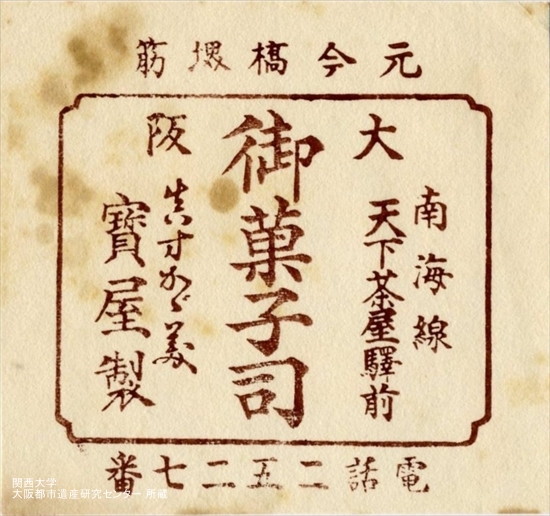 元今橋堺筋
大阪
南海線
天下茶屋驛前
御菓子司
真寸かゞ美
寶屋製
電話二五二七番
関西大学
大阪都市遺産研究センター 所蔵